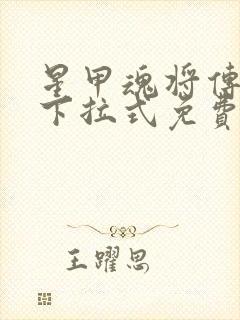 星甲魂将傳
下拉式免費
王躍思